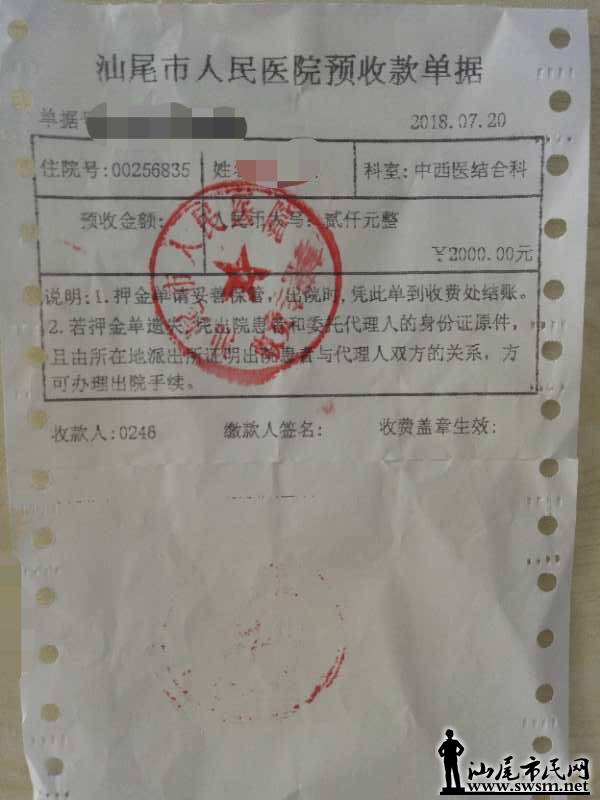 汕尾市人民医院预收款单据
单据
2018.07.20
住院号:00256835
姓名
科室:中西医结合科
预收金额:
人民币大写:贰仟元整
¥2000.00元
说明:1.押金单请妥善保管，出院时,凭此单到收费处结账。
2.若押金单遗失,凭出院患者和委托代理人的身份证原件，
且由所在地派出所证明出院患者与代理人双方的关系，方
可办理出院手续。
收款人:0246
缴款人签名:
收费盖章生效:
市人民医院
汕尾市民网
www.swsm.net